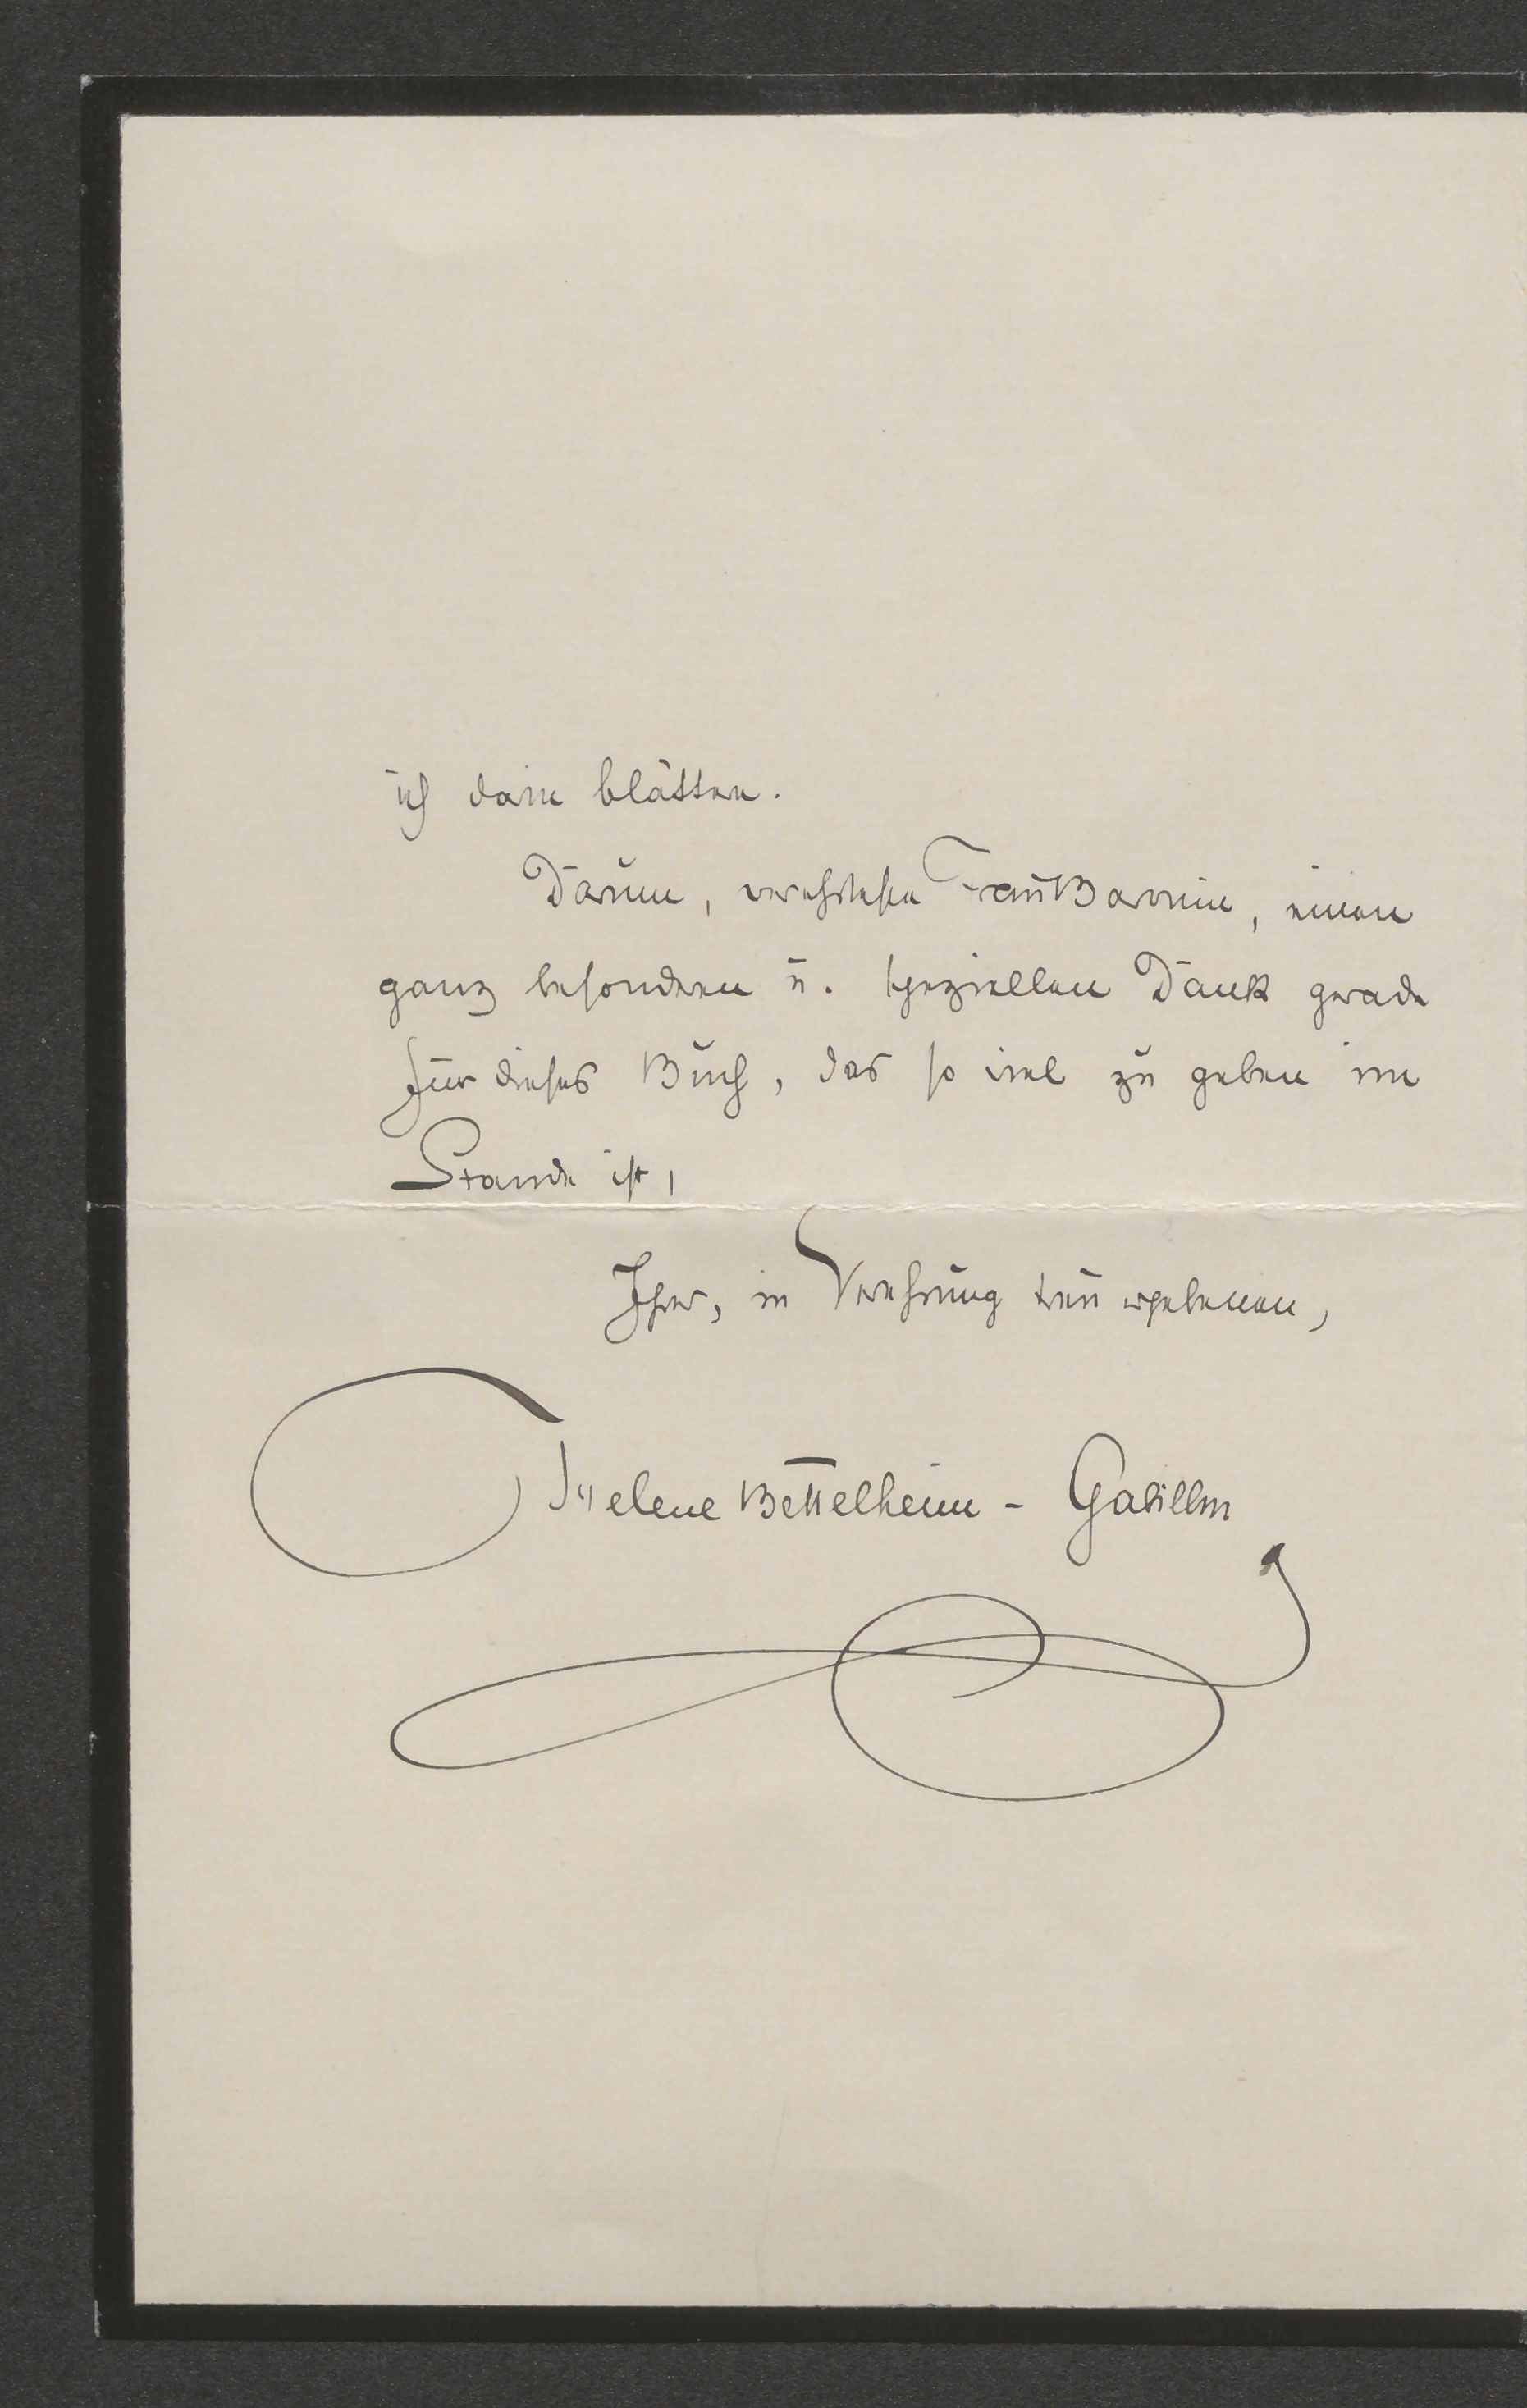 ich darin blättere.
Darum, verehrteste Frau Baronin, einen
ganz besonderen u. speziellen Dank gerade
für dieses Buch, das so viel zu geben im
Stande ist,
Ihrer, in Verehrung treu ergebenen,
Helene Bettelheim - Gabillon